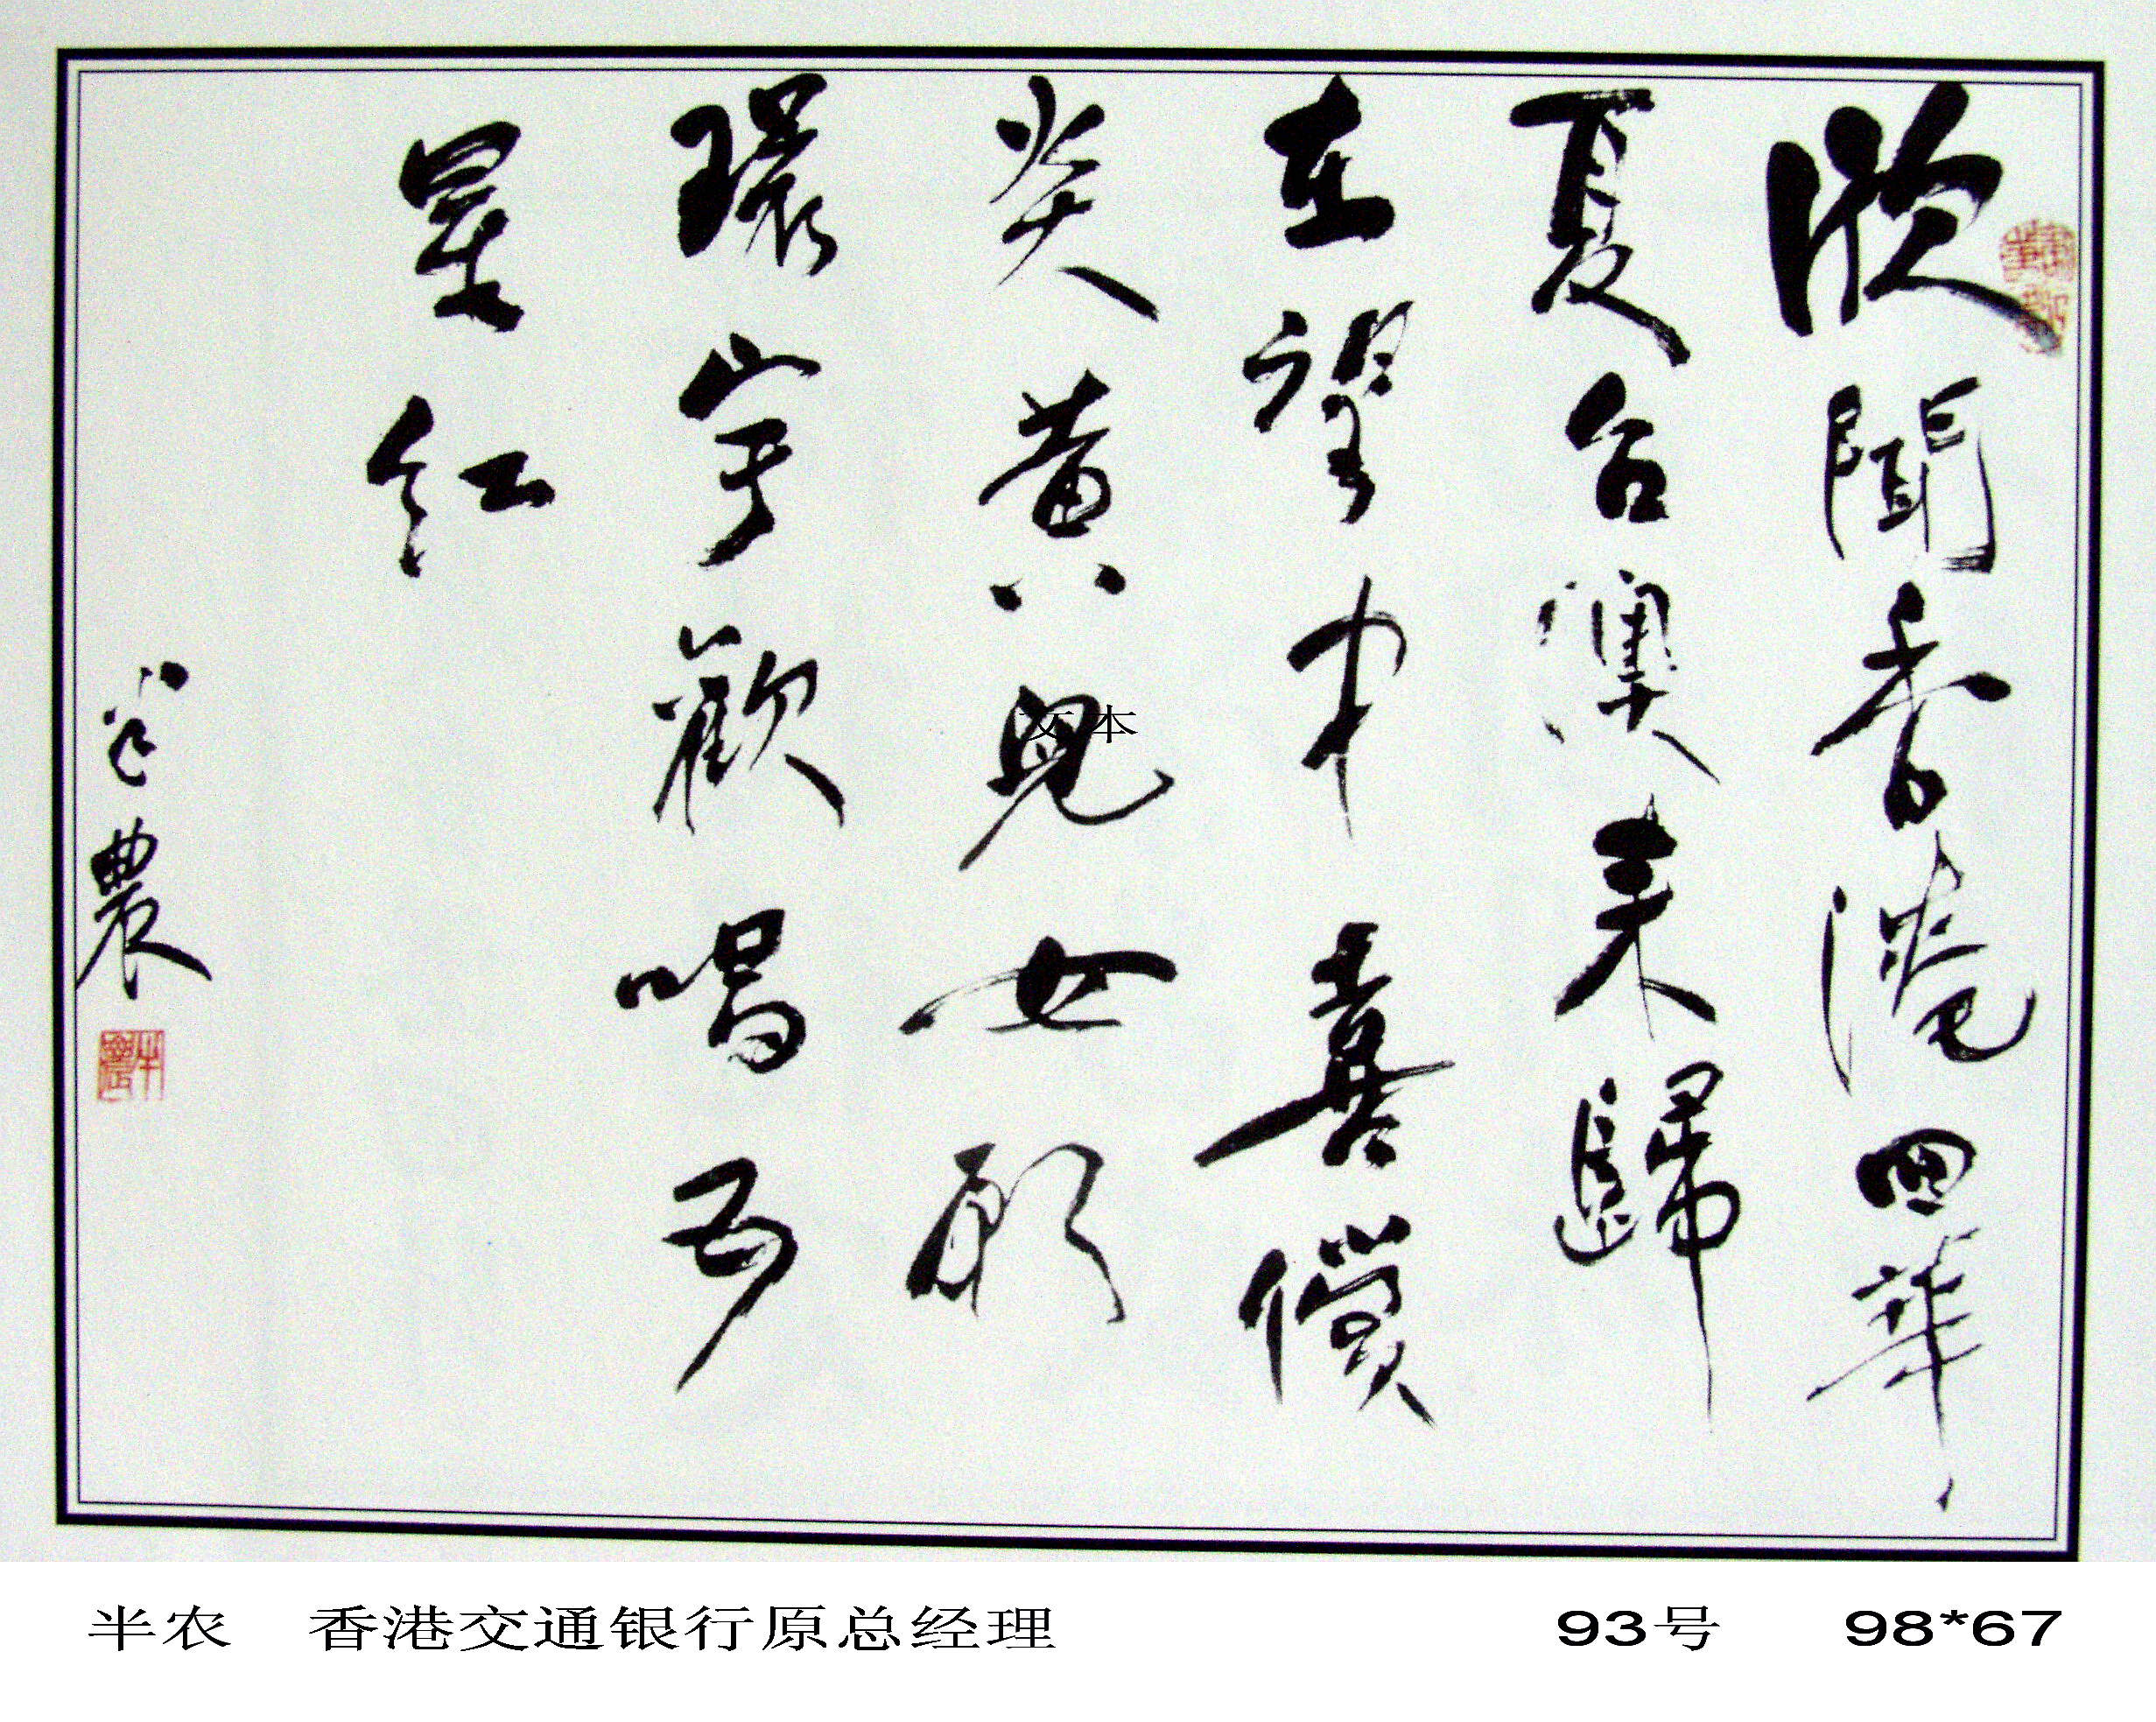 欣聞香港回華
夏台澳来歸
在望中喜償
炎黄兒女願
環宇歡唱五
星紅
半農
半農
文本
半农 香港交通银行原总经理 93号 98*67